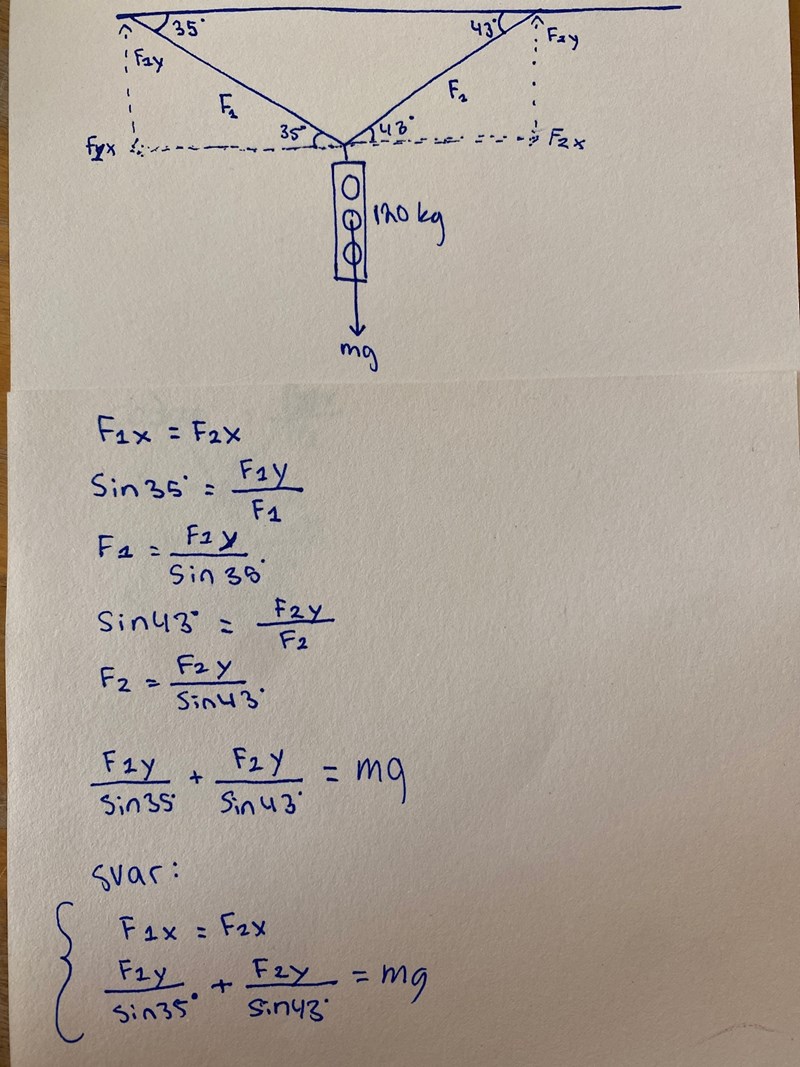 35°
43°
F1y
F2y
F1
F2
35°
43°
F1x
F2x
120 kg
mg
F1x = F2x
Sin 35° = F1y / F1
F1 = F1y / Sin 35°
Sin 43° = F2y / F2
F2 = F2y / Sin 43°
F1y / Sin 35° + F2y / Sin 43° = mg
Svar:
F1x = F2x
F1y / Sin 35° + F2y / Sin 43° = mg